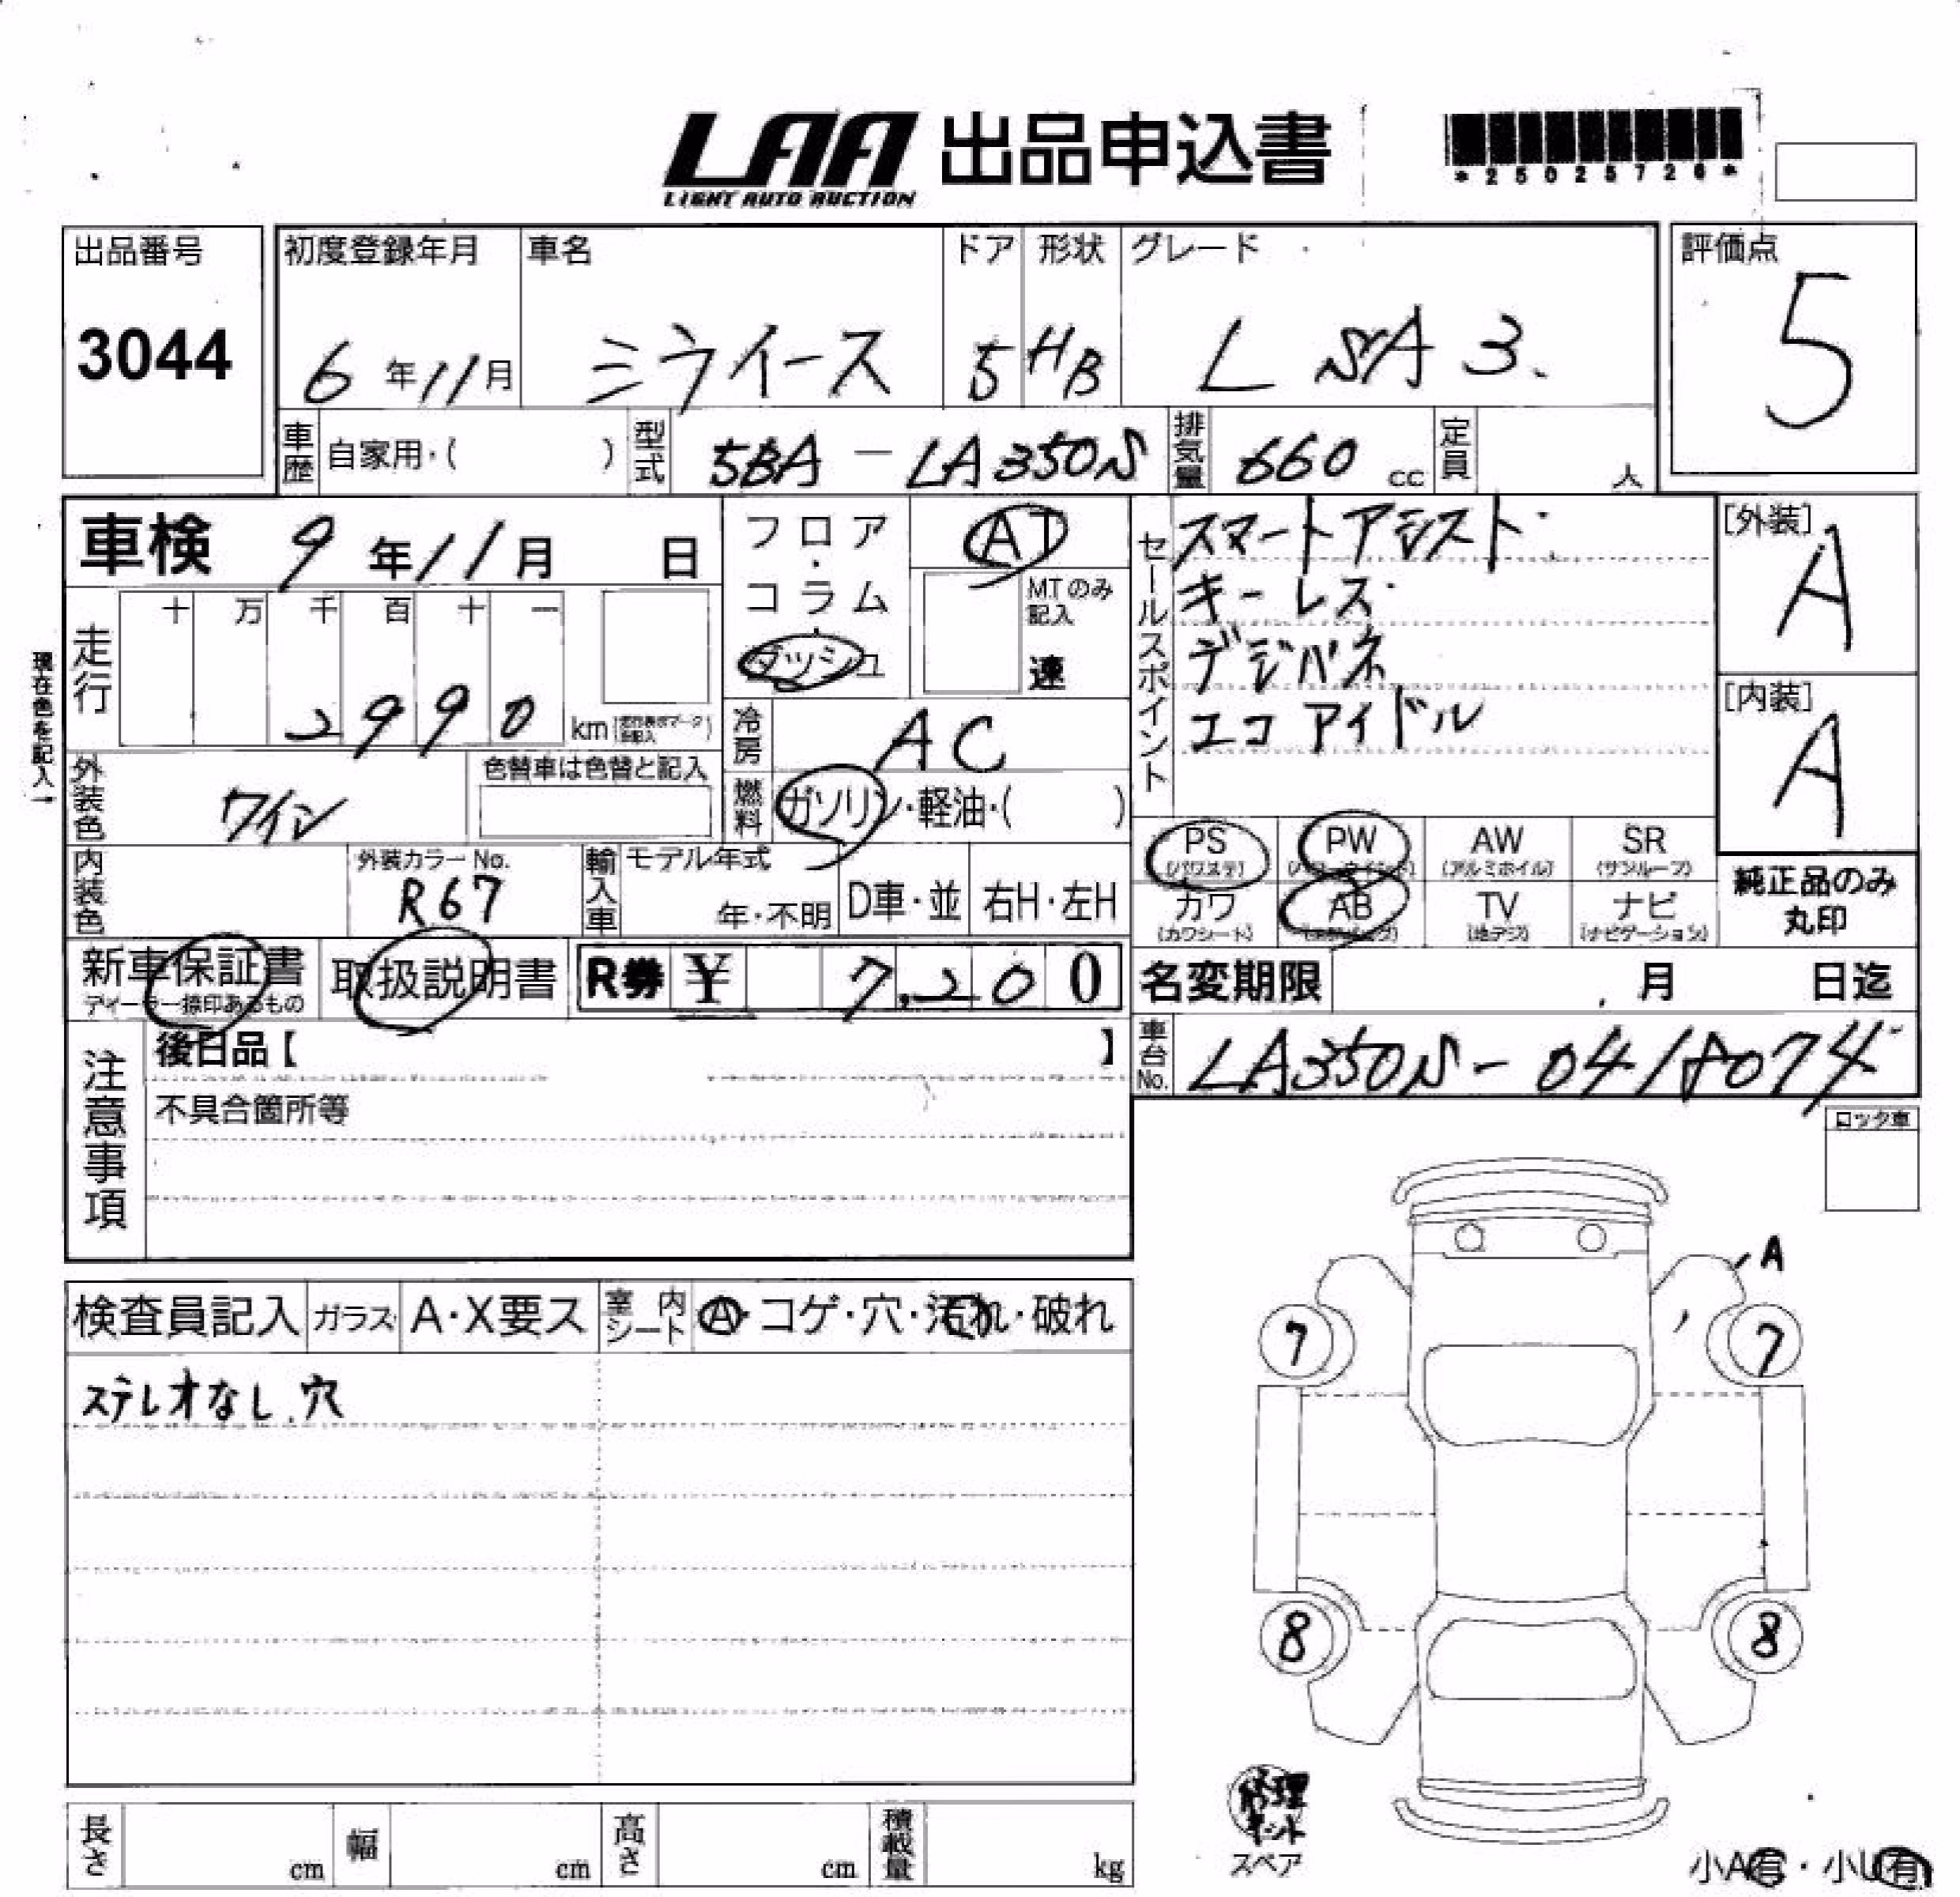 LAA 出品申込書
LIGHT AUTO AUCTION
*25025726*
出品番号
3044
初度登録年月
6年11月
車名
ミライース
ドア
5
形状
HB
グレード
L SA3.
評価点
5
車歴
自家用・( )
型式
5BA-LA350S
排気量
660 cc
定員
人
車検 9年11月 日
フロア・コラム・ダッシュ
AT
MTのみ記入
速
セールスポイント
スマートアシスト
キーレス
デジパネ
エコアイドル
[外装]
A
[内装]
A
現在色を記入→
走行
十 万 千 百 十 一
2990 km
冷房
AC
外装色
ワイン
色替車は色替と記入
燃料
ガソリン・軽油・( )
PS (パワステ)
PW
AW (アルミホイル)
SR (サンルーフ)
カワ (カワシート)
AB
TV (地デジ)
ナビ (ナビゲーション)
純正品のみ
丸印
内装色
外装カラーNo.
R67
輸入車
モデル年式
年・不明
D車・並
右H・左H
新車保証書
ディーラー捺印あるもの
取扱説明書
R券 ¥ 7,200
名変期限 月 日迄
車台No.
LA350S-0418074
注意事項
後日品【 】
不具合箇所等
ロック車
検査員記入
ガラス
A・X要ス
室内シート
A・コゲ・穴・汚れ・破れ
ステレオなし.穴
A
7
7
8
8
修理
キット
スペア
長さ cm
幅 cm
高さ cm
積載量 kg
小A有・小U有